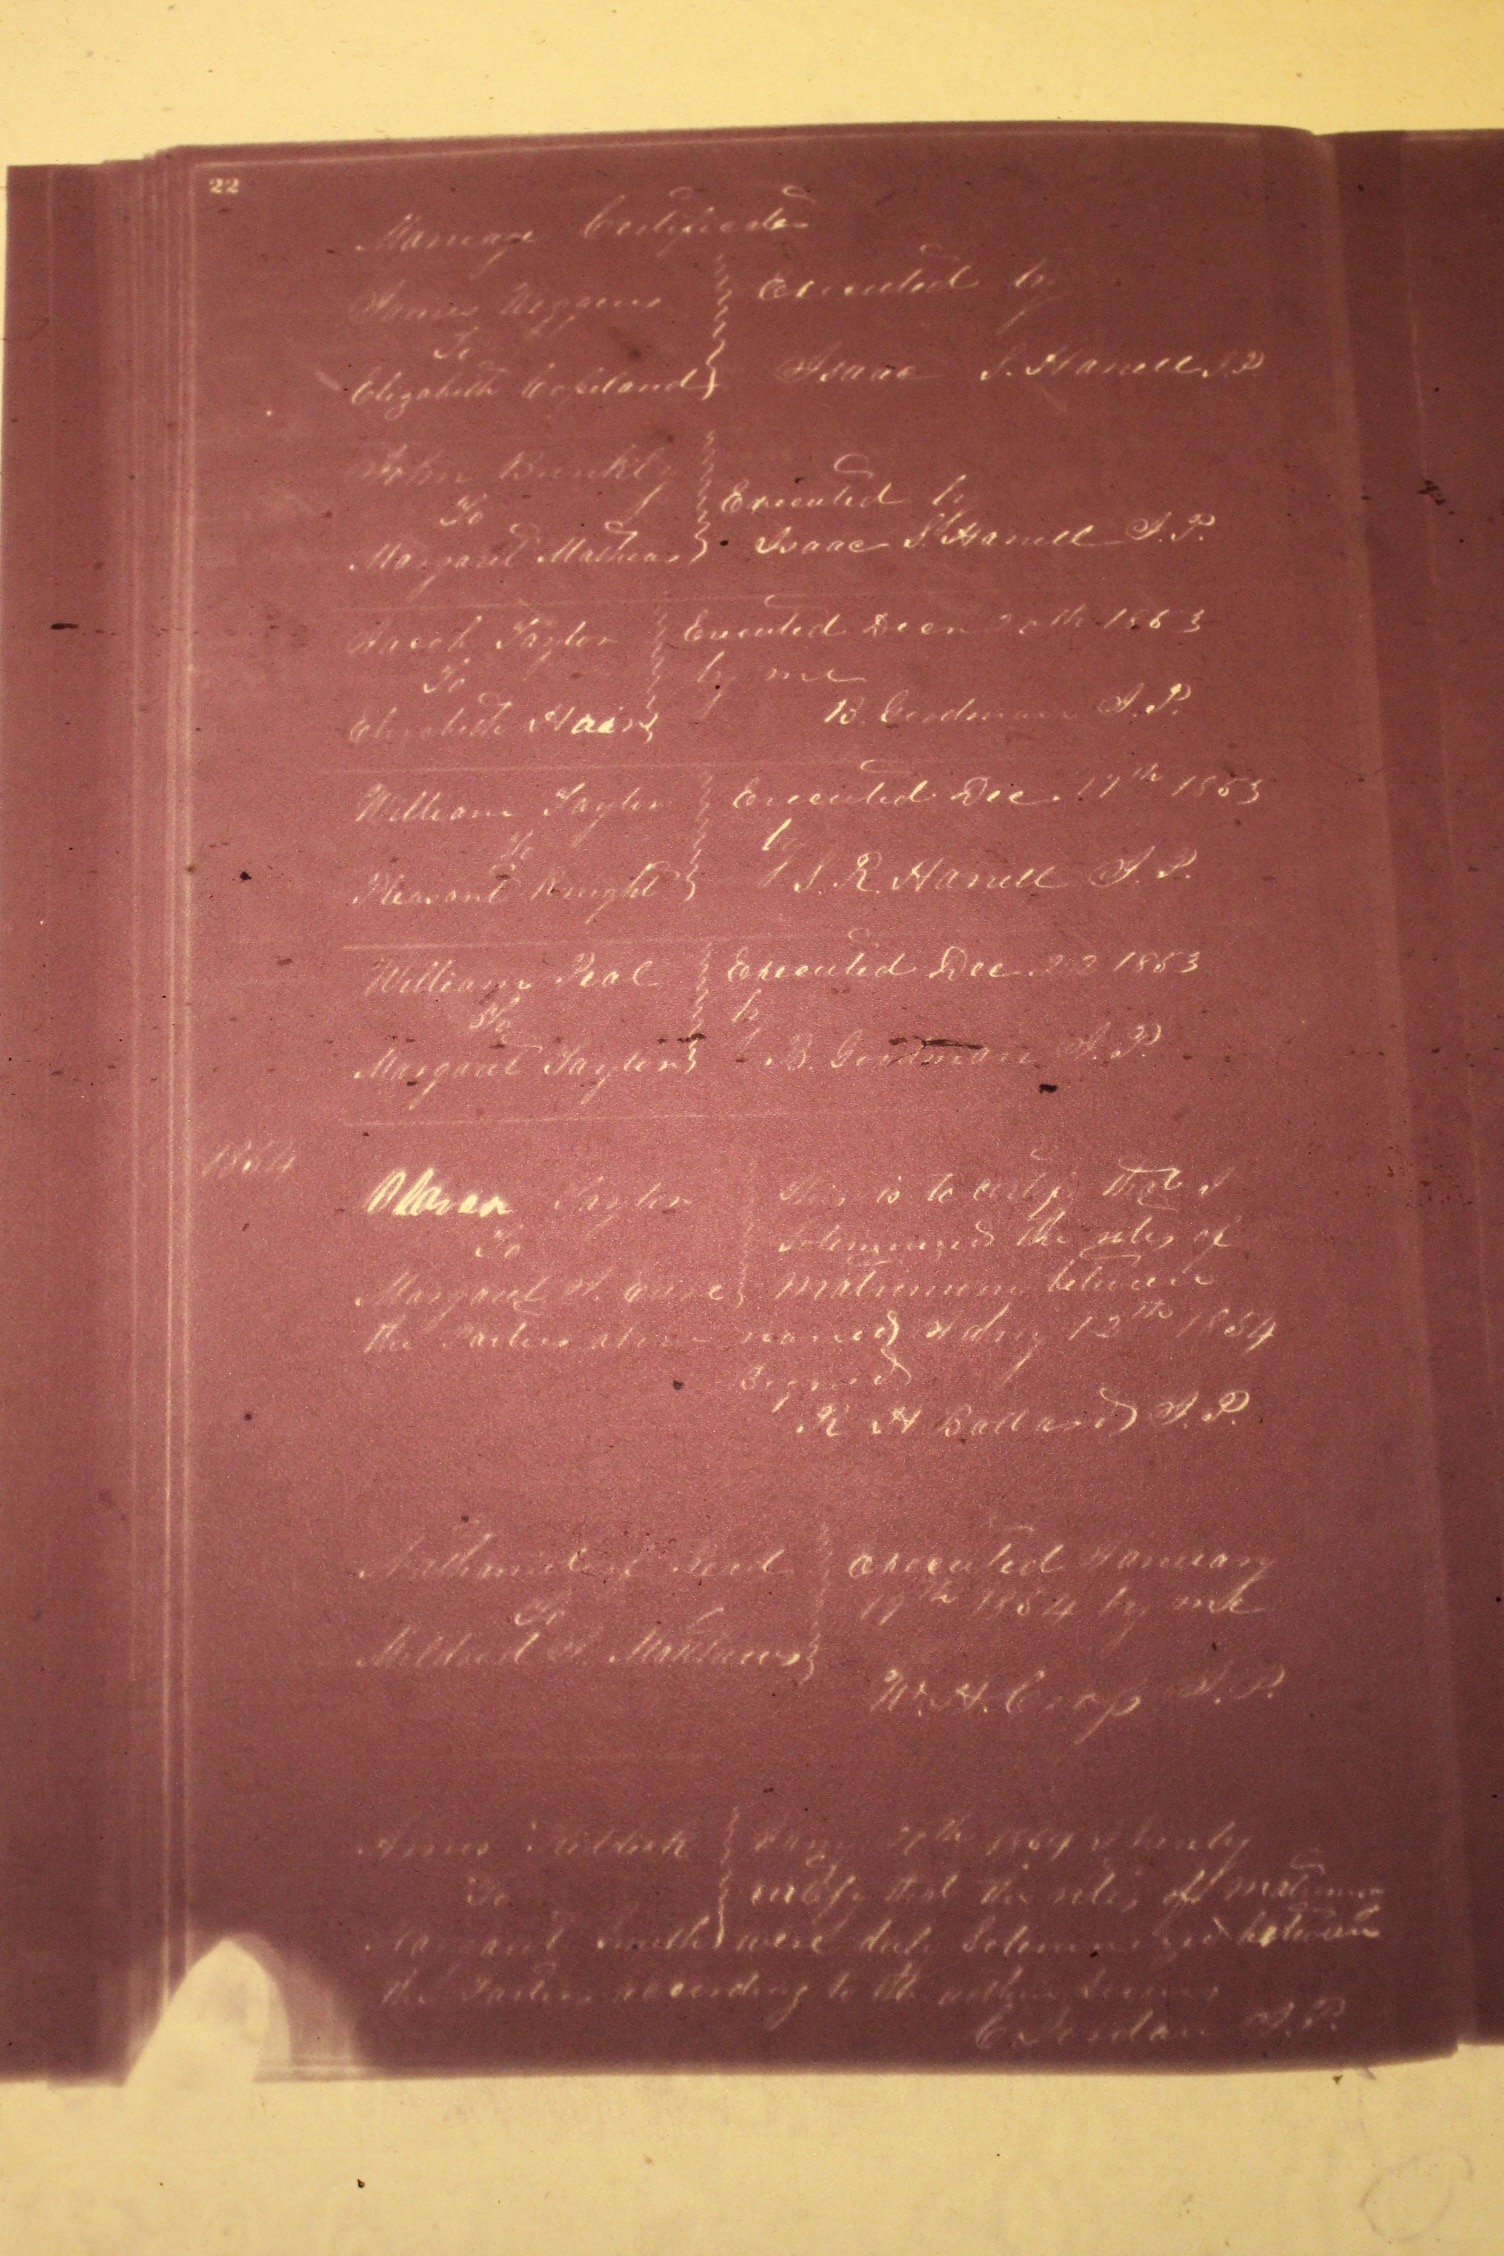 22
Marriage Certificates
James Wiggins } Executed by
To
Elizabeth Copeland } Isaac S. Harrell J.P.
John Brinkly
To } Executed by
Margaret Mathias } Isaac S. Harrell J.P.
Jacob Taylor } Executed Decr 20th 1853
To } by me
Elizabeth Hair } B. Goodman J.P.
William Taylor } Executed Dec. 17th 1853
To } by
Pleasant Knight } S. R. Harrell J.P.
William Peal } Executed Dec 22 1853
To } by
Margaret Taylor } B. Goodman J.P.
1854
Taylor } This is to certify that I
To } Solemnized the rites of
Margaret } Matrimony between
the Parties above named 12th 1854
Signed
R H Ballard J.P.
Nathaniel } executed January
To } 19th 1854 by me
Mildred Matthews }
W. H. Cross J.P.
Riddick } Jany 1854 I hereby
To } certify that the rites of matrimony
Margaret Smith } were duly Solemnized between
the Parties according to the within
C Jordan J.P.